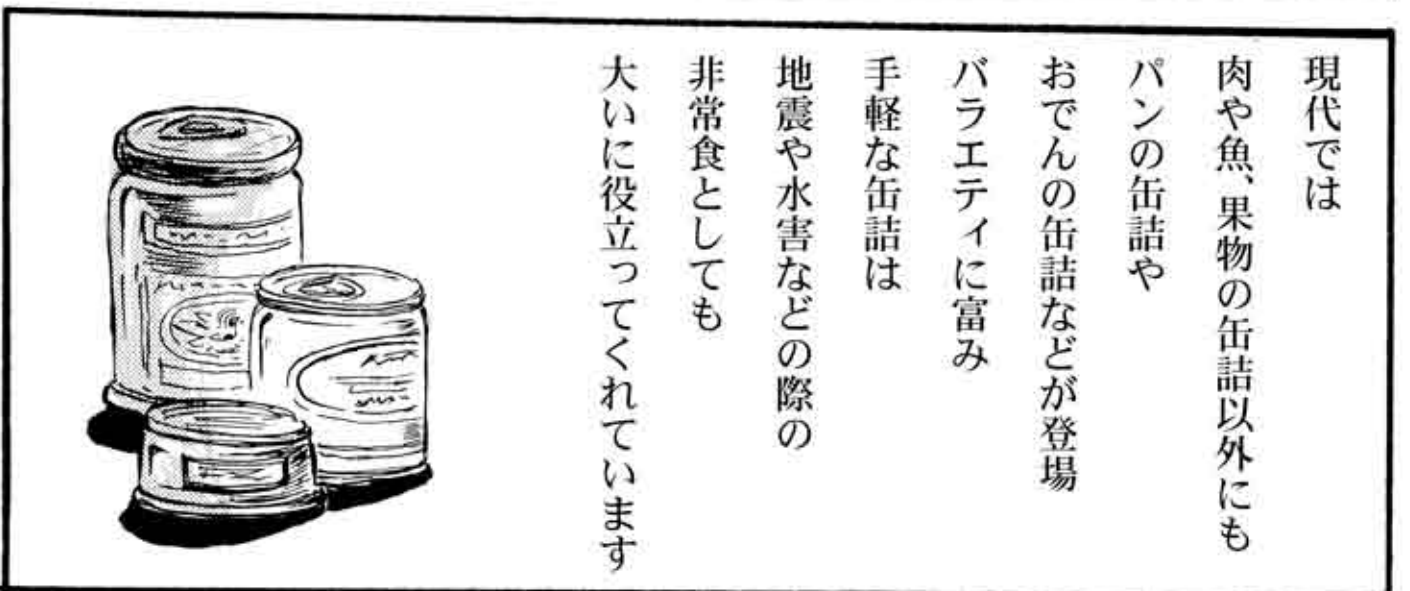 現代では
肉や魚、果物の缶詰以外にも
パンの缶詰や
おでんの缶詰などが登場
バラエティに富み
手軽な缶詰は
地震や水害などの際の
非常食としても
大いに役立ってくれています